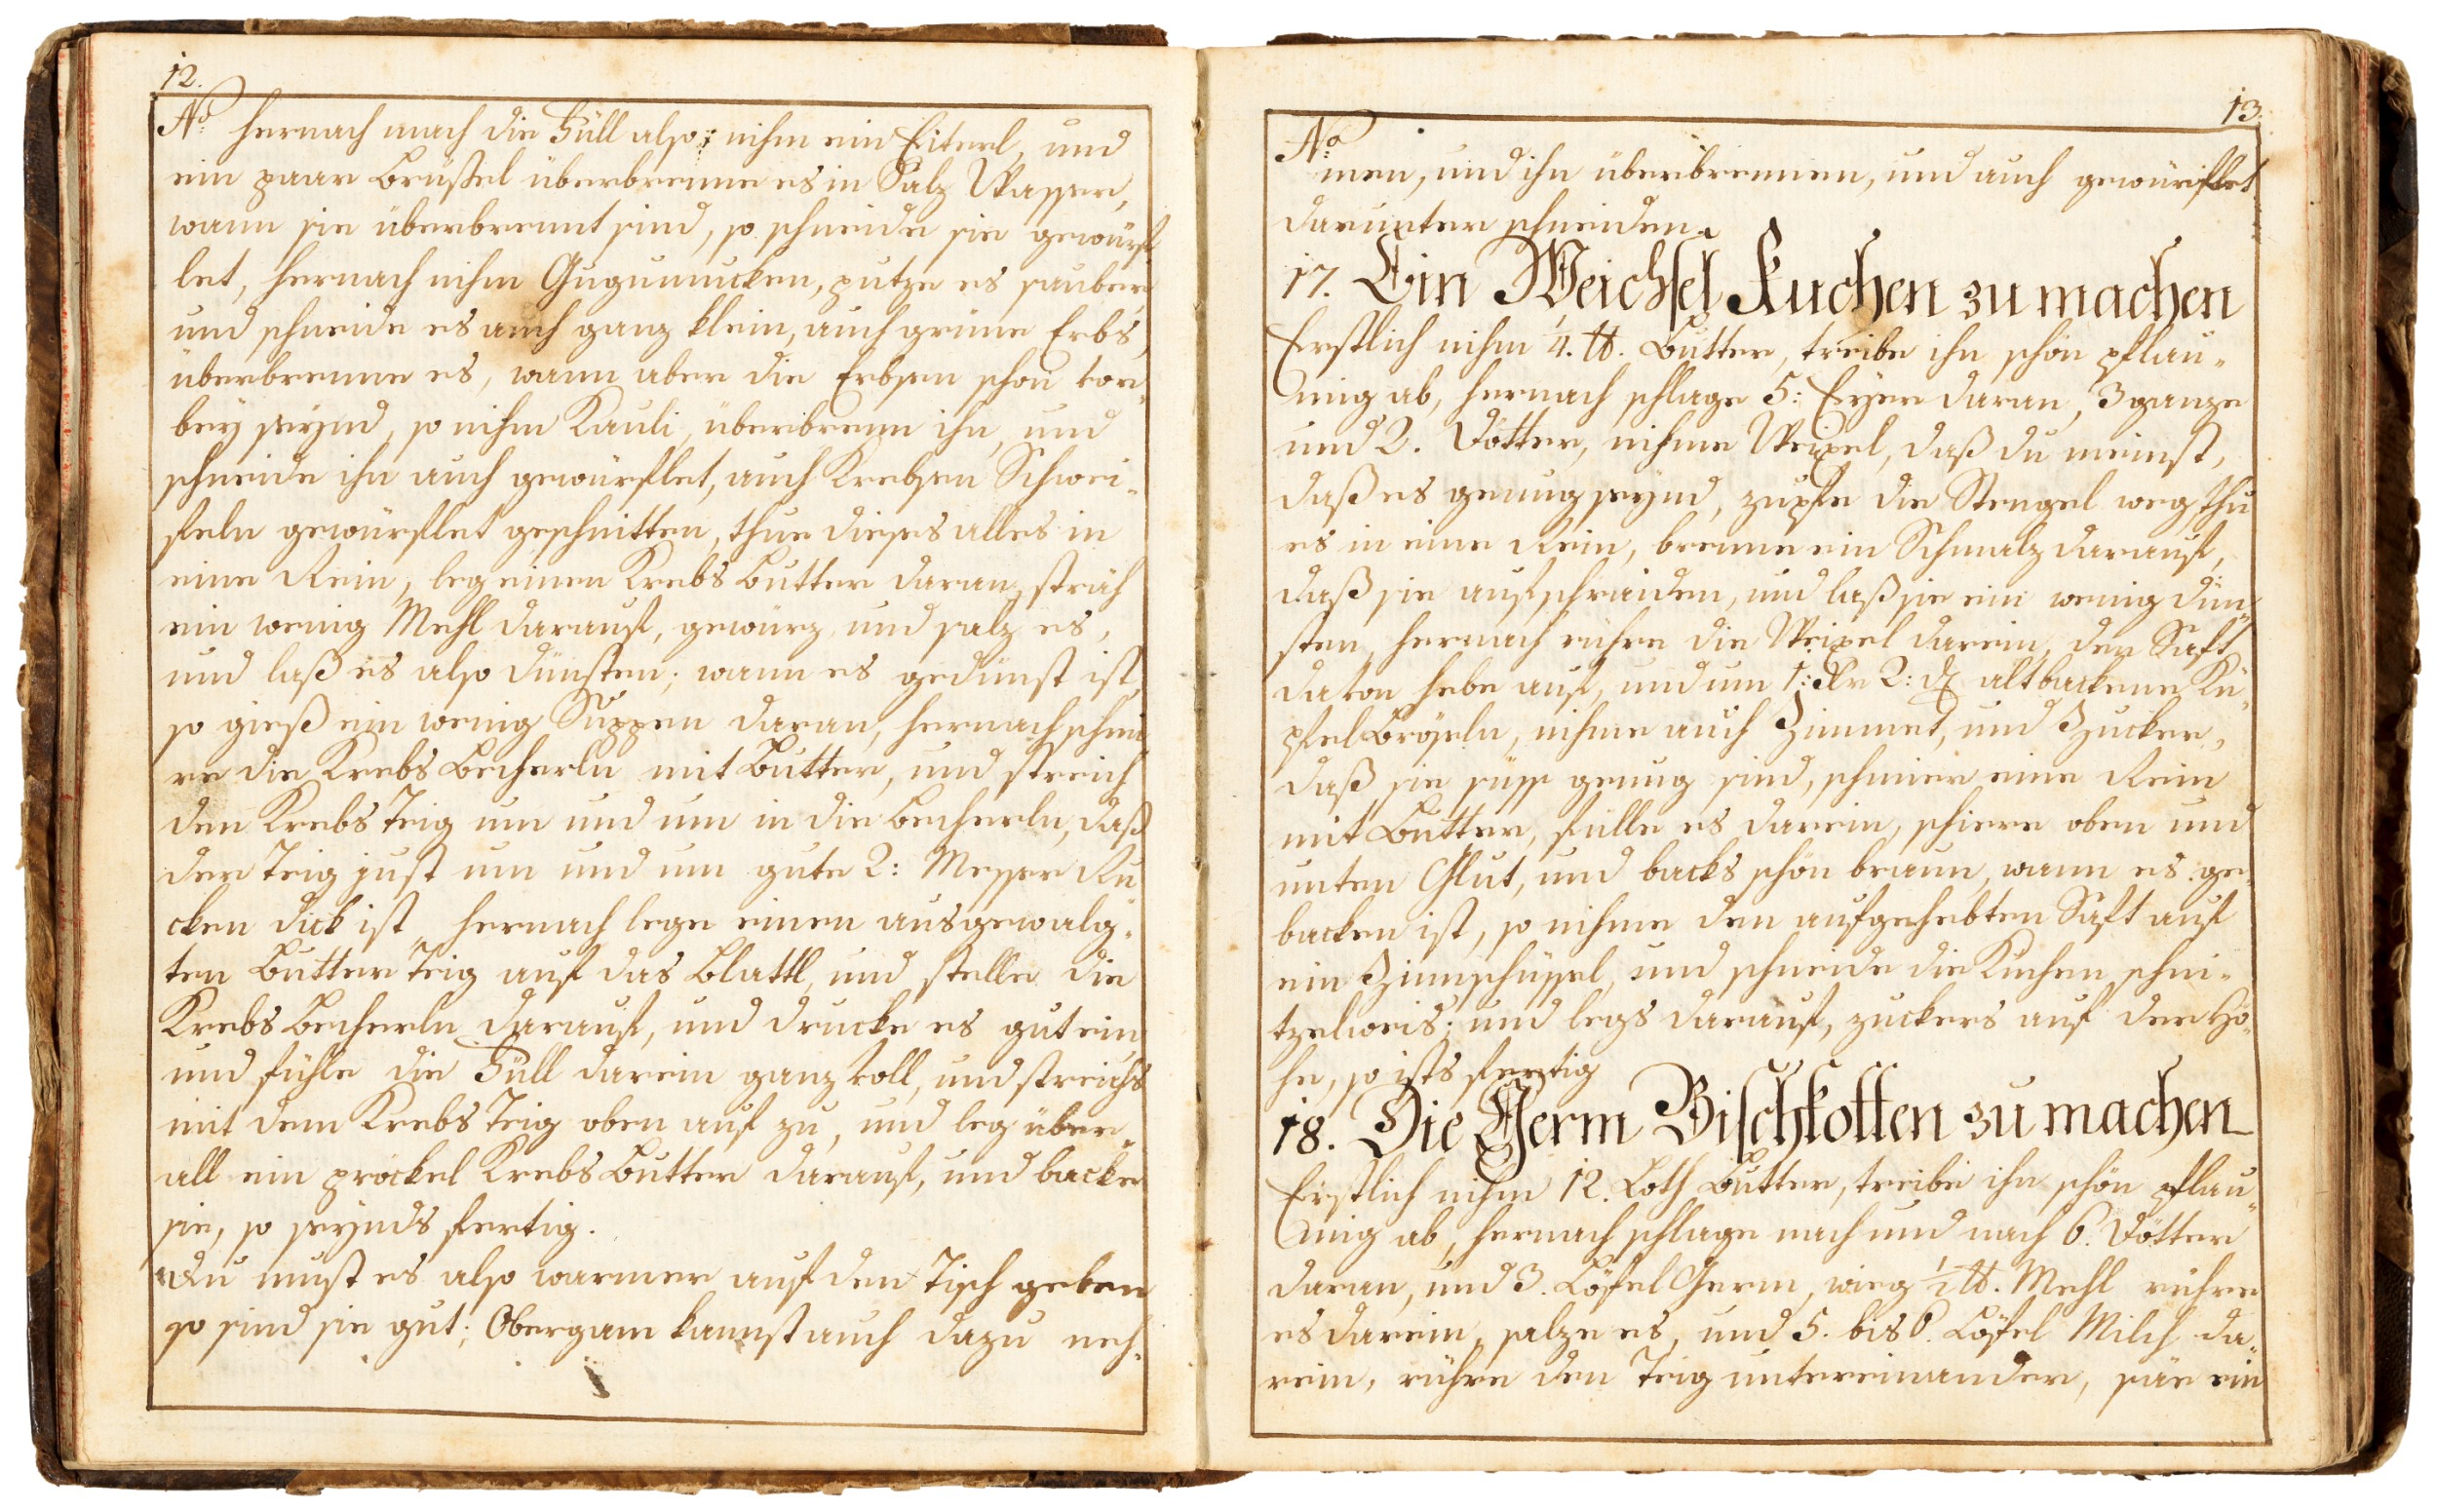 12.
No hernach mach die Füll also: nihm ein Eiterl, und
ein paar Brüßel überbrenne es in Salz Wasser,
wann sie überbrennt sind, so schneide sie gewürf-
let, hernach nihm Gugumucken, putze es sauber
und schneide es auch ganz klein, auch grüne Erbs,
überbrenne es, wann aber die Erbsen schon vor-
bey seynd, so nihm Kauli, überbrenn ihn, und
schneide ihn auch gewürflet, auch Krebsen Schwei-
feln gewürflet geschnitten, thue dieses alles in
eine Rein, leg einen Krebs Butter daran, sträh
ein wenig Mehl darauf, gewürz und salz es,
und laß es also dünsten; wann es gedünst ist
so gieß ein wenig Suppen daran, hernach schmi
re die Krebs Becherln mit Butter, und streich
den Krebs Teig um und um in die Becherln, daß
der Teig just um und um gute 2: Messer Ru
cken dick ist, hernach lege einen ausgewalg-
ten Butter Teig auf das Blattl, und stelle die
Krebs Becherln darauf, und drucke es gut ein
und fühle die Füll darein ganz voll, und streichs
mit dem Krebs Teig oben auf zu, und leg über-
all ein pröckel Krebs Butter darauf, und backe
sie, so seynds fertig.
Du must es also warmer auf den Tisch geben
so sind sie gut; Obergam kannst auch dazu neh-
13.
No
men, und ihn überbrennen, und auch gewürflet
darunter schneiden.
17. Ein Weichsel Kuchen zu machen
Erstlich nihm ¼. ℔. Butter, treibe ihn schön pflau-
mig ab, hernach schlage 5: Eyer daran, 3 ganze
und 2. Dötter, nihme Weixel, daß du meinst,
daß es genug seynd, zupfe die Stengel weg thu
es in eine Rein, brenne ein Schmalz darauf,
daß sie aufschreiden, und laß sie ein wenig dün-
sten, hernach rühre die Weixel darein, den Saft
davon hebe auf, und um 1: 2: altbackene Kü-
pfel Bröseln, nihme auch Zimmet, und Zucker,
daß sie süss genug sind, schmier eine Rein
mit Butter, fülle es darein, schiere oben und
unten Glut, und backs schön braun, wann es ge-
backen ist, so nihme den aufgehebten Saft auf
ein Zinnschüssel, und schneide die Kuchen schni-
tzelweis; und legs darauf, zuckers auf der Hö-
he, so ists fertig
18. Die Germ Bischkotten zu machen
Erstlich nihm 12. Loth Butter, treibe ihn schön pflau-
mig ab, hernach schlage nach und nach 6. Dötter
daran, und 3. Löfel Germ, wieg ½ ℔. Mehl rühre
es darein, salze es, und 5. bis 6. Löfel Milch da-
rein, rühre den Teig untereinander, säe ein